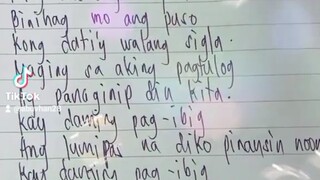 Binihag mo ang puso
Kong dati'y walang sigla.
Maging sa aking pagtulog
panaginip din kita.
Kay daming pag-ibig
Ang lumipas na diko pinansin noon
daming pag-ibig
TikTok